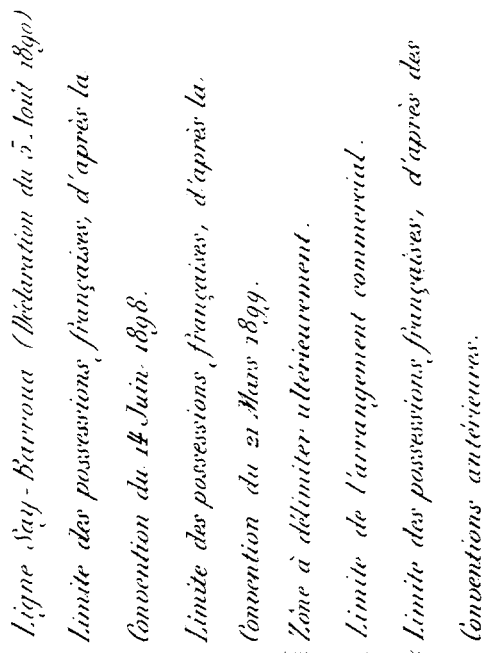 Ligne Say-Barroua (Déclaration du 5 Août 1890)
Limite des possessions françaises, d'après la
Convention du 14 Juin 1898.
Limite des possessions françaises, d'après la
Convention du 21 Mars 1899.
Zône à délimiter ultérieurement.
Limite de l'arrangement commercial.
Limite des possessions françaises, d'après des
Conventions antérieures.